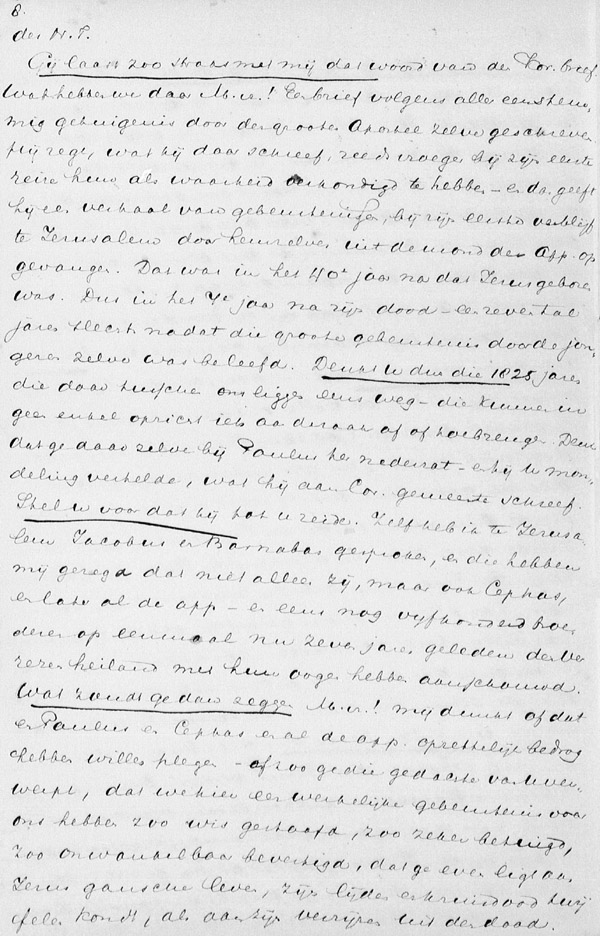 8.
des N.T.
Gij laast zoo straks met mij dat woord van den Kor. brief.
Wat hebben we daar M.v.! Een brief volgens aller eenstem-
mig getuigenis door den grooten Apostel zelven geschreven
Hij zegt, wat hij daar schreef, reeds vroeger bij zijn eerste
reize hun als waarheid verkondigd te hebben – en dan geeft
hij een verhaal van gebeurtenissen, bij zijn eerste verblijf
te Jerusalem door hemzelven uit de mond der App. op-
gevangen. Dat was in het 40e jaar na dat Jezus geboren
was. Dus in het 7e jaar na zijn dood – een zevental
jaren slechts nadat die groote gebeurtenis door de jon-
geren zelve was beleefd. Denkt u dus die 1825 jaren
die daar tusschen ons liggen eens weg – die kunnen in
geen enkel opzicht iets aan de zaak af of toebrengen. Denk
dat ge daar zelve bij Paulus neder zat – en hij u mon-
deling verhelde, wat hij aan Cor. gemeente schreef.
Stel u voor dat hij tot u zeide. Zelf heb ik te Jerusa-
lem Jacobus en Barnabas gesproken, en die hebben
mij gezegd dat niet alleen zij, maar ook Cephas,
en later al de app – en eens nog vijfhonderd broe-
deren op eenmaal nu zeven jaren geleden den ver-
rezen heiland met hun oogen hebben aanschouwd.
Wat zoudt ge dan zeggen M.v.! mij dunkt of dat
en Paulus en Cephas en al de app. opzettelijk bedrog
hebben willen plegen – of zoo ge die gedachte van u ver-
werpt, dat we hier een werkelijke gebeurtenis voor
ons hebben zoo wis gestaafd, zoo zeker betuigd,
zoo onwankelbaar bevestigd, dat ge even ligt aan
Jezus gansche leven, zijn lijden en kruisdood twij
felen kondt, als aan zijn verrijzen uit den dood.